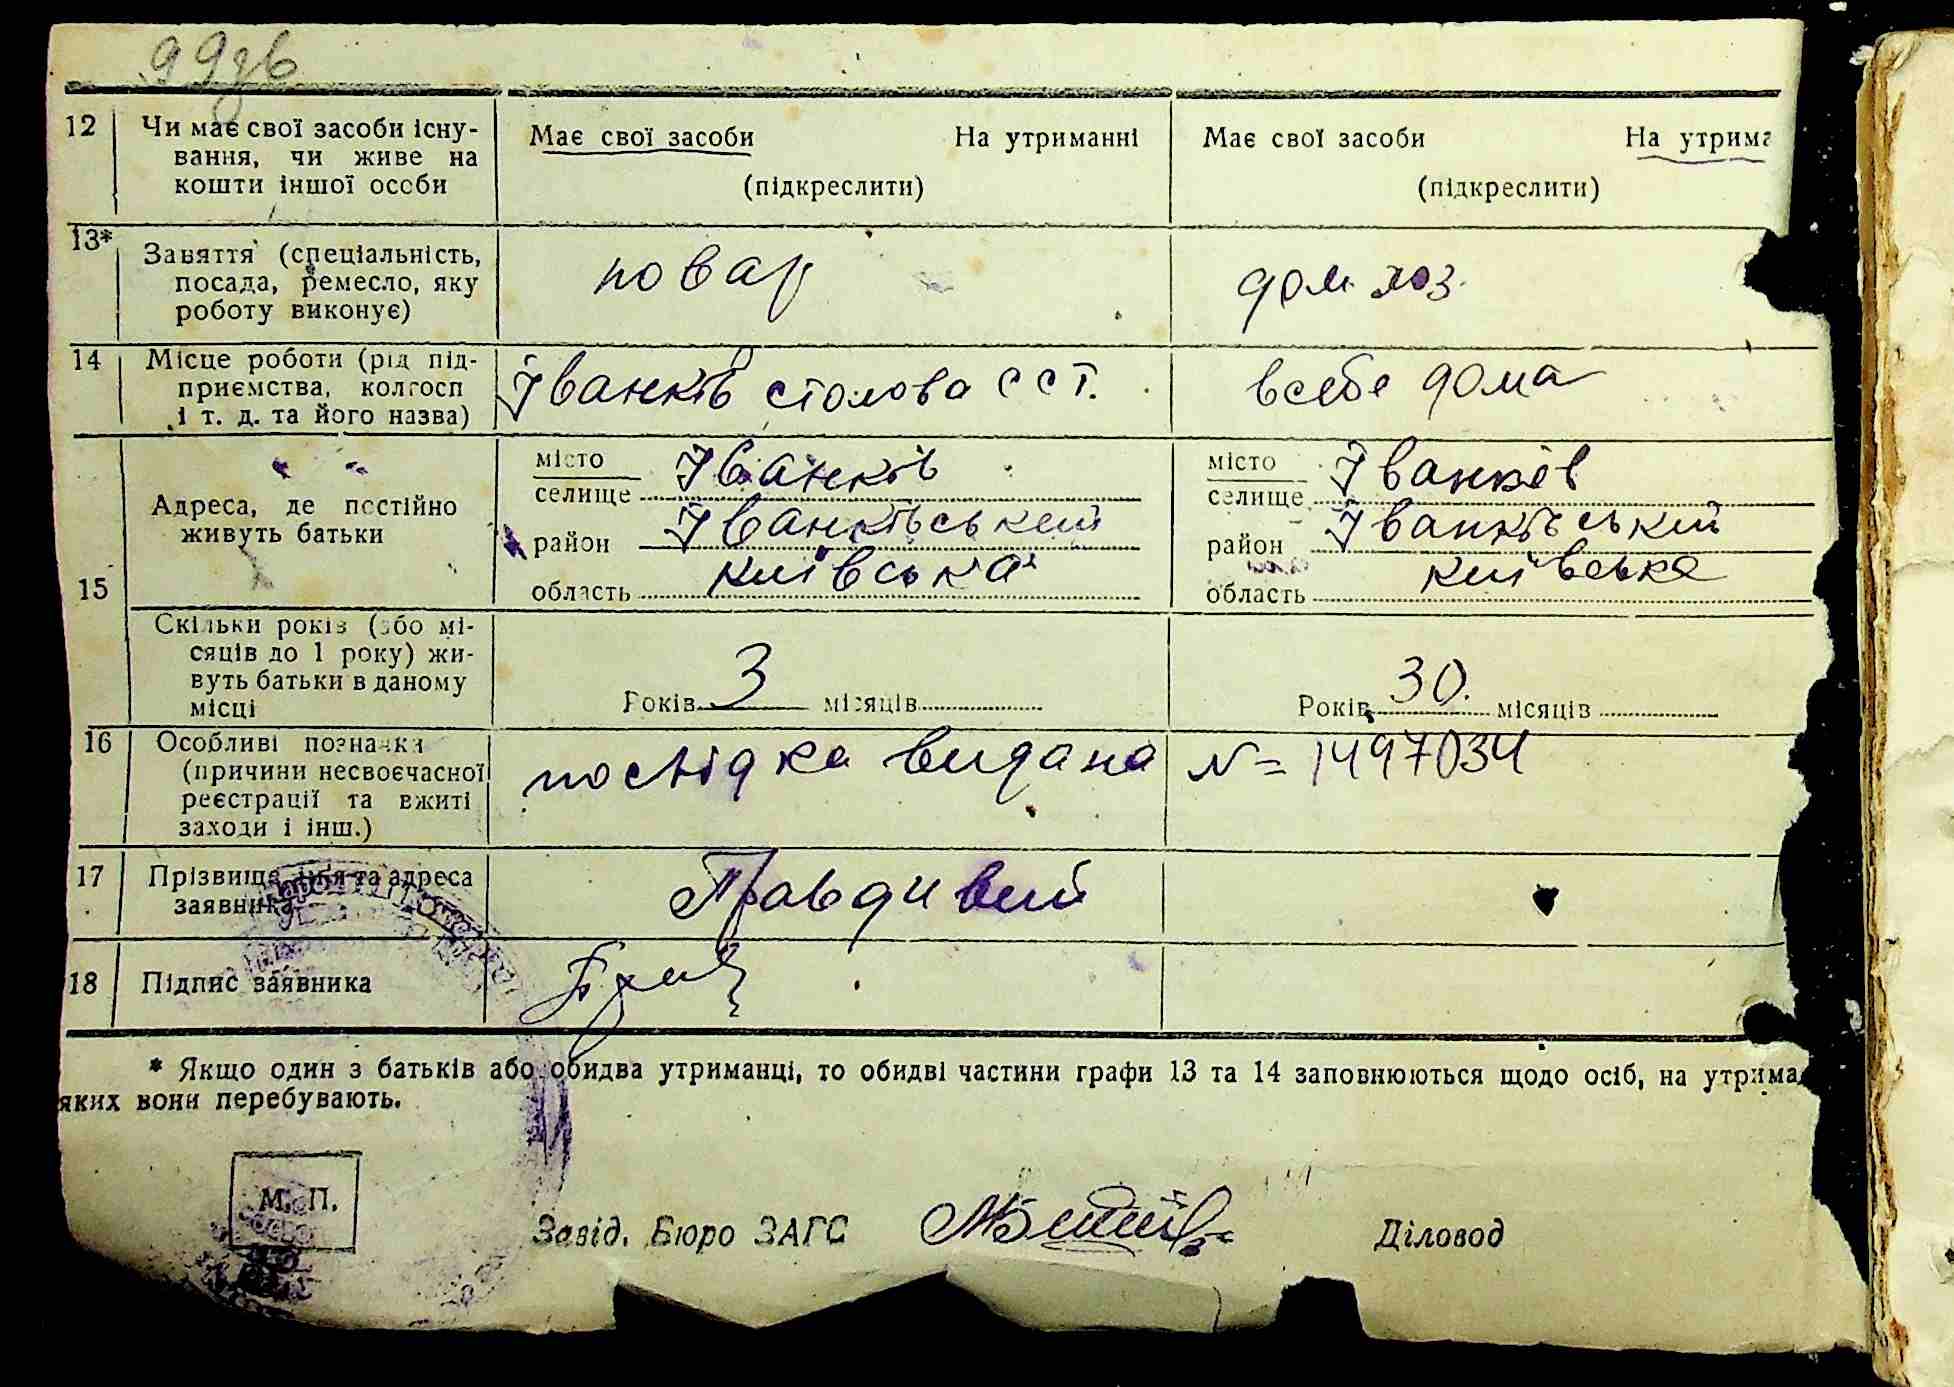 99зв
12 Чи має свої засоби існу-
вання, чи живе на
кошти іншої особи
Має свої засоби На утриманні
(підкреслити)
Має свої засоби На утрима
(підкреслити)
13* Заняття (спеціальність,
посада, ремесло, яку
роботу виконує)
повар
дом. хоз.
14 Місце роботи (рід під-
приємства, колгосп
і т. д. та його назва)
Іванків столова ССТ.
в себе дома
15 Адреса, де постійно
живуть батьки
місто
селище Іванків
район Іванківський
область київська
місто
селище Іванків
район Іванківський
область київська
Скільки років (або мі-
сяців до 1 року) жи-
вуть батьки в даному
місці
Років 3 місяців
Років 30. місяців
16 Особливі позначки
(причини несвоєчасної
реєстрації та вжиті
заходи і інш.)
послідка видана № 1497034
17 Прізвище, ім'я та адреса
заявника
Правдивий
18 Підпис заявника
* Якщо один з батьків або обидва утриманці, то обидві частини графи 13 та 14 заповнюються щодо осіб, на утрима
яких вони перебувають.
М. П.
Завід. Бюро ЗАГС Діловод